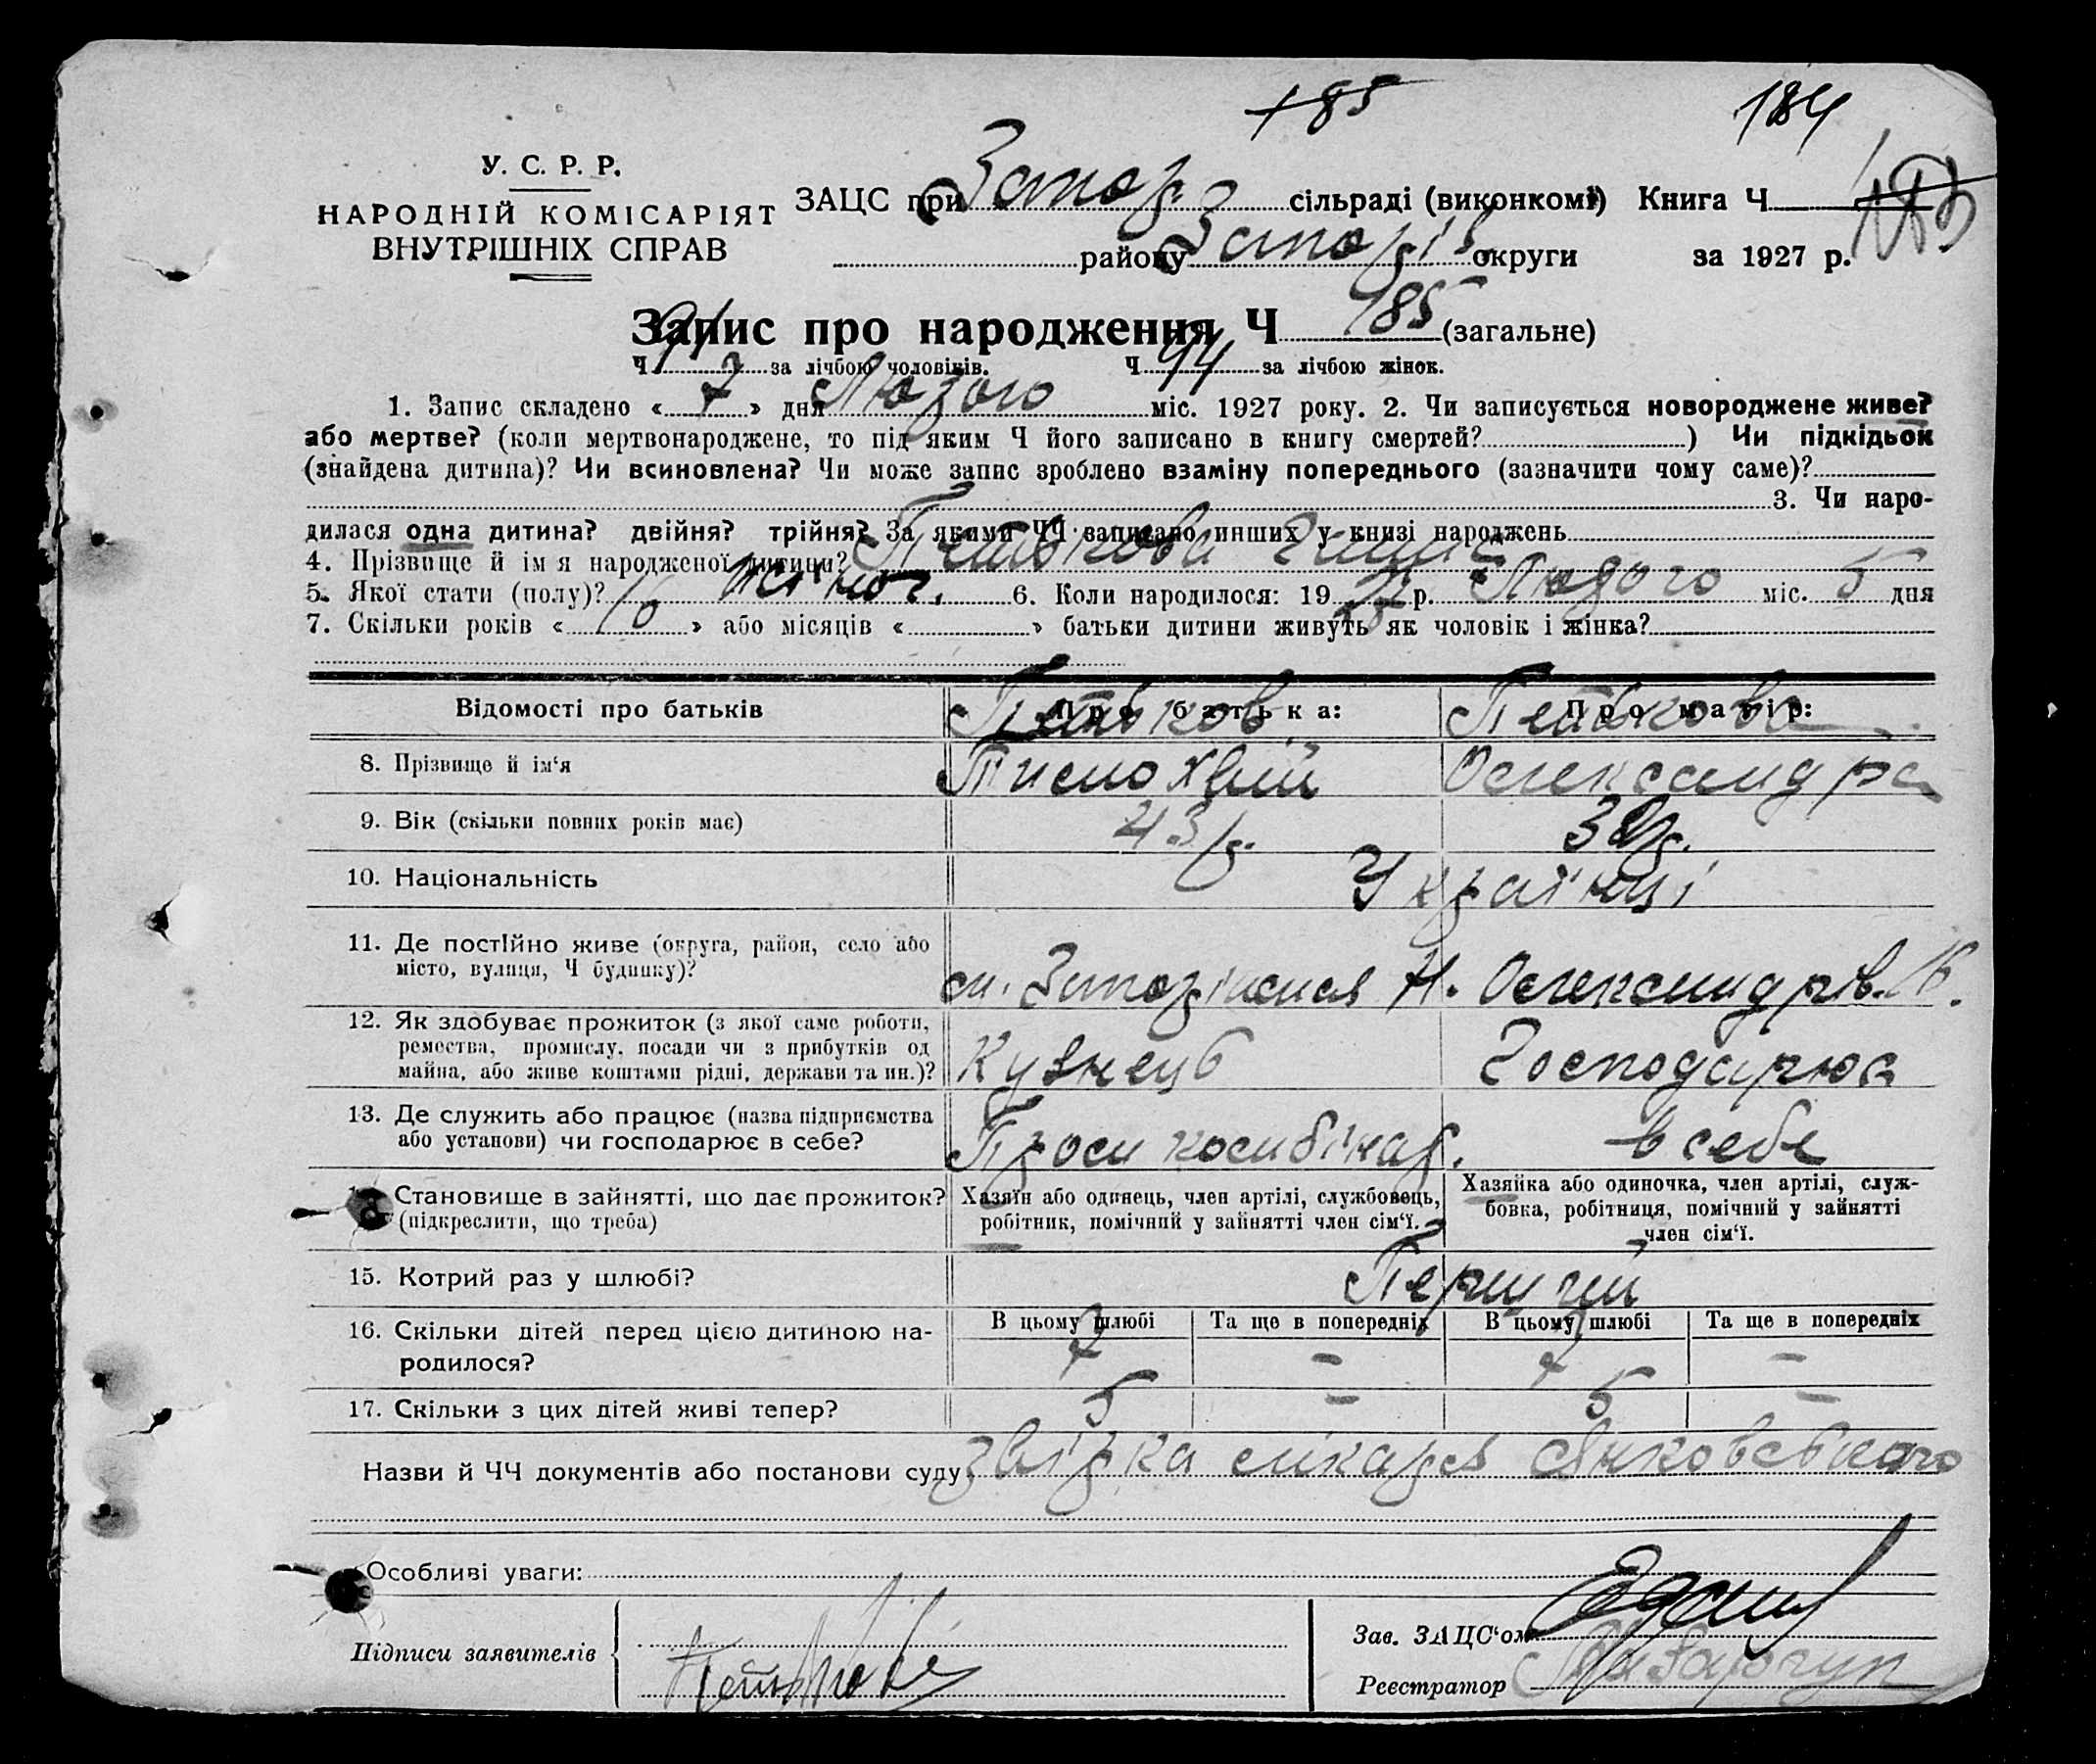 185
184
У. С. Р. Р.
НАРОДНІЙ КОМІСАРІЯТ
ВНУТРІШНІХ СПРАВ
ЗАЦС при Запор. сільраді (виконкомі) Книга Ч
району Запоріз. округи за 1927 р.
Запис про народження Ч 185 (загальне)
Ч 91 за лічбою чоловіків. Ч 94 за лічбою жінок.
1. Запис складено « 7 » дня Лютого міс. 1927 року. 2. Чи записується новороджене живе?
або мертве? (коли мертвонароджене, то під яким Ч його записано в книгу смертей? ) Чи підкідьок
(знайдена дитина)? Чи всиновлена? Чи може запис зроблено взаміну попереднього (зазначити чому саме)?
3. Чи наро-
дилася одна дитина? двійня? трійня? За якими ЧЧ записано инших у книзі народжень
4. Прізвище й ім я народженої дитини? Петькова
5. Якої стати (полу)? жіноч. 6. Коли народилося: 19 р. Лютого міс. 5 дня
7. Скільки років « 16 » або місяців « » батьки дитини живуть як чоловік і жінка?
Відомості про батьків Про батька: Про матір:
Петьков Петькова
8. Прізвище й ім‘я Тимохвій Олександра
9. Вік (скільки повних років має) 43/р. 38/р.
10. Національність Українці
11. Де постійно живе (округа, район, село або
місто, вулиця, Ч будинку)? м. Запоріжжя Н. Олександрів. 16.
12. Як здобуває прожиток (з якої саме роботи,
ремества, промислу, посади чи з прибутків од
майна, або живе коштами рідні, держави та ин.)? Кузнець Господарює
13. Де служить або працює (назва підприємства
або установи) чи господарює в себе? Пром комбінар. в себе
Становище в зайнятті, що дає прожиток?
(підкреслити, що треба)
Хазяїн або одинець, член артілі, службовець,
робітник, помічний у зайнятті член сім‘ї.
Хазяйка або одиночка, член артілі, служ-
бовка, робітниця, помічний у зайнятті
член сім‘ї.
15. Котрий раз у шлюбі? Перший
16. Скільки дітей перед цією дитиною на-
родилося?
В цьому шлюбі Та ще в попередніх В цьому шлюбі Та ще в попередніх
7 – 7 –
17. Скільки з цих дітей живі тепер? 5 – 5 –
Назви й ЧЧ документів або постанови суду звірка лікаря Янковського
Особливі уваги:
Підписи заявителів
Зав. ЗАЦС‘ом
Реєстратор